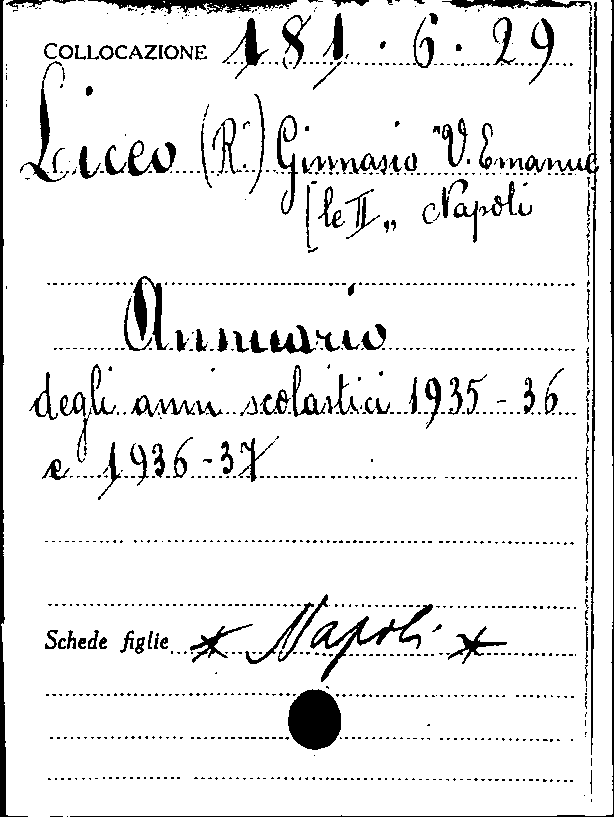 COLLOCAZIONE 181.6.29
Liceo (R.) Ginnasio "V. Emanue
[le II„ Napoli
Annuario
degli anni scolastici 1935-36
e 1936-37
Schede figlie * Napoli *